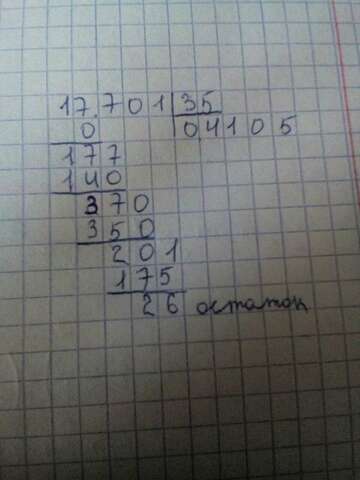 17,701 35
0 0,4105
177
140
370
350
201
175
26 остаток